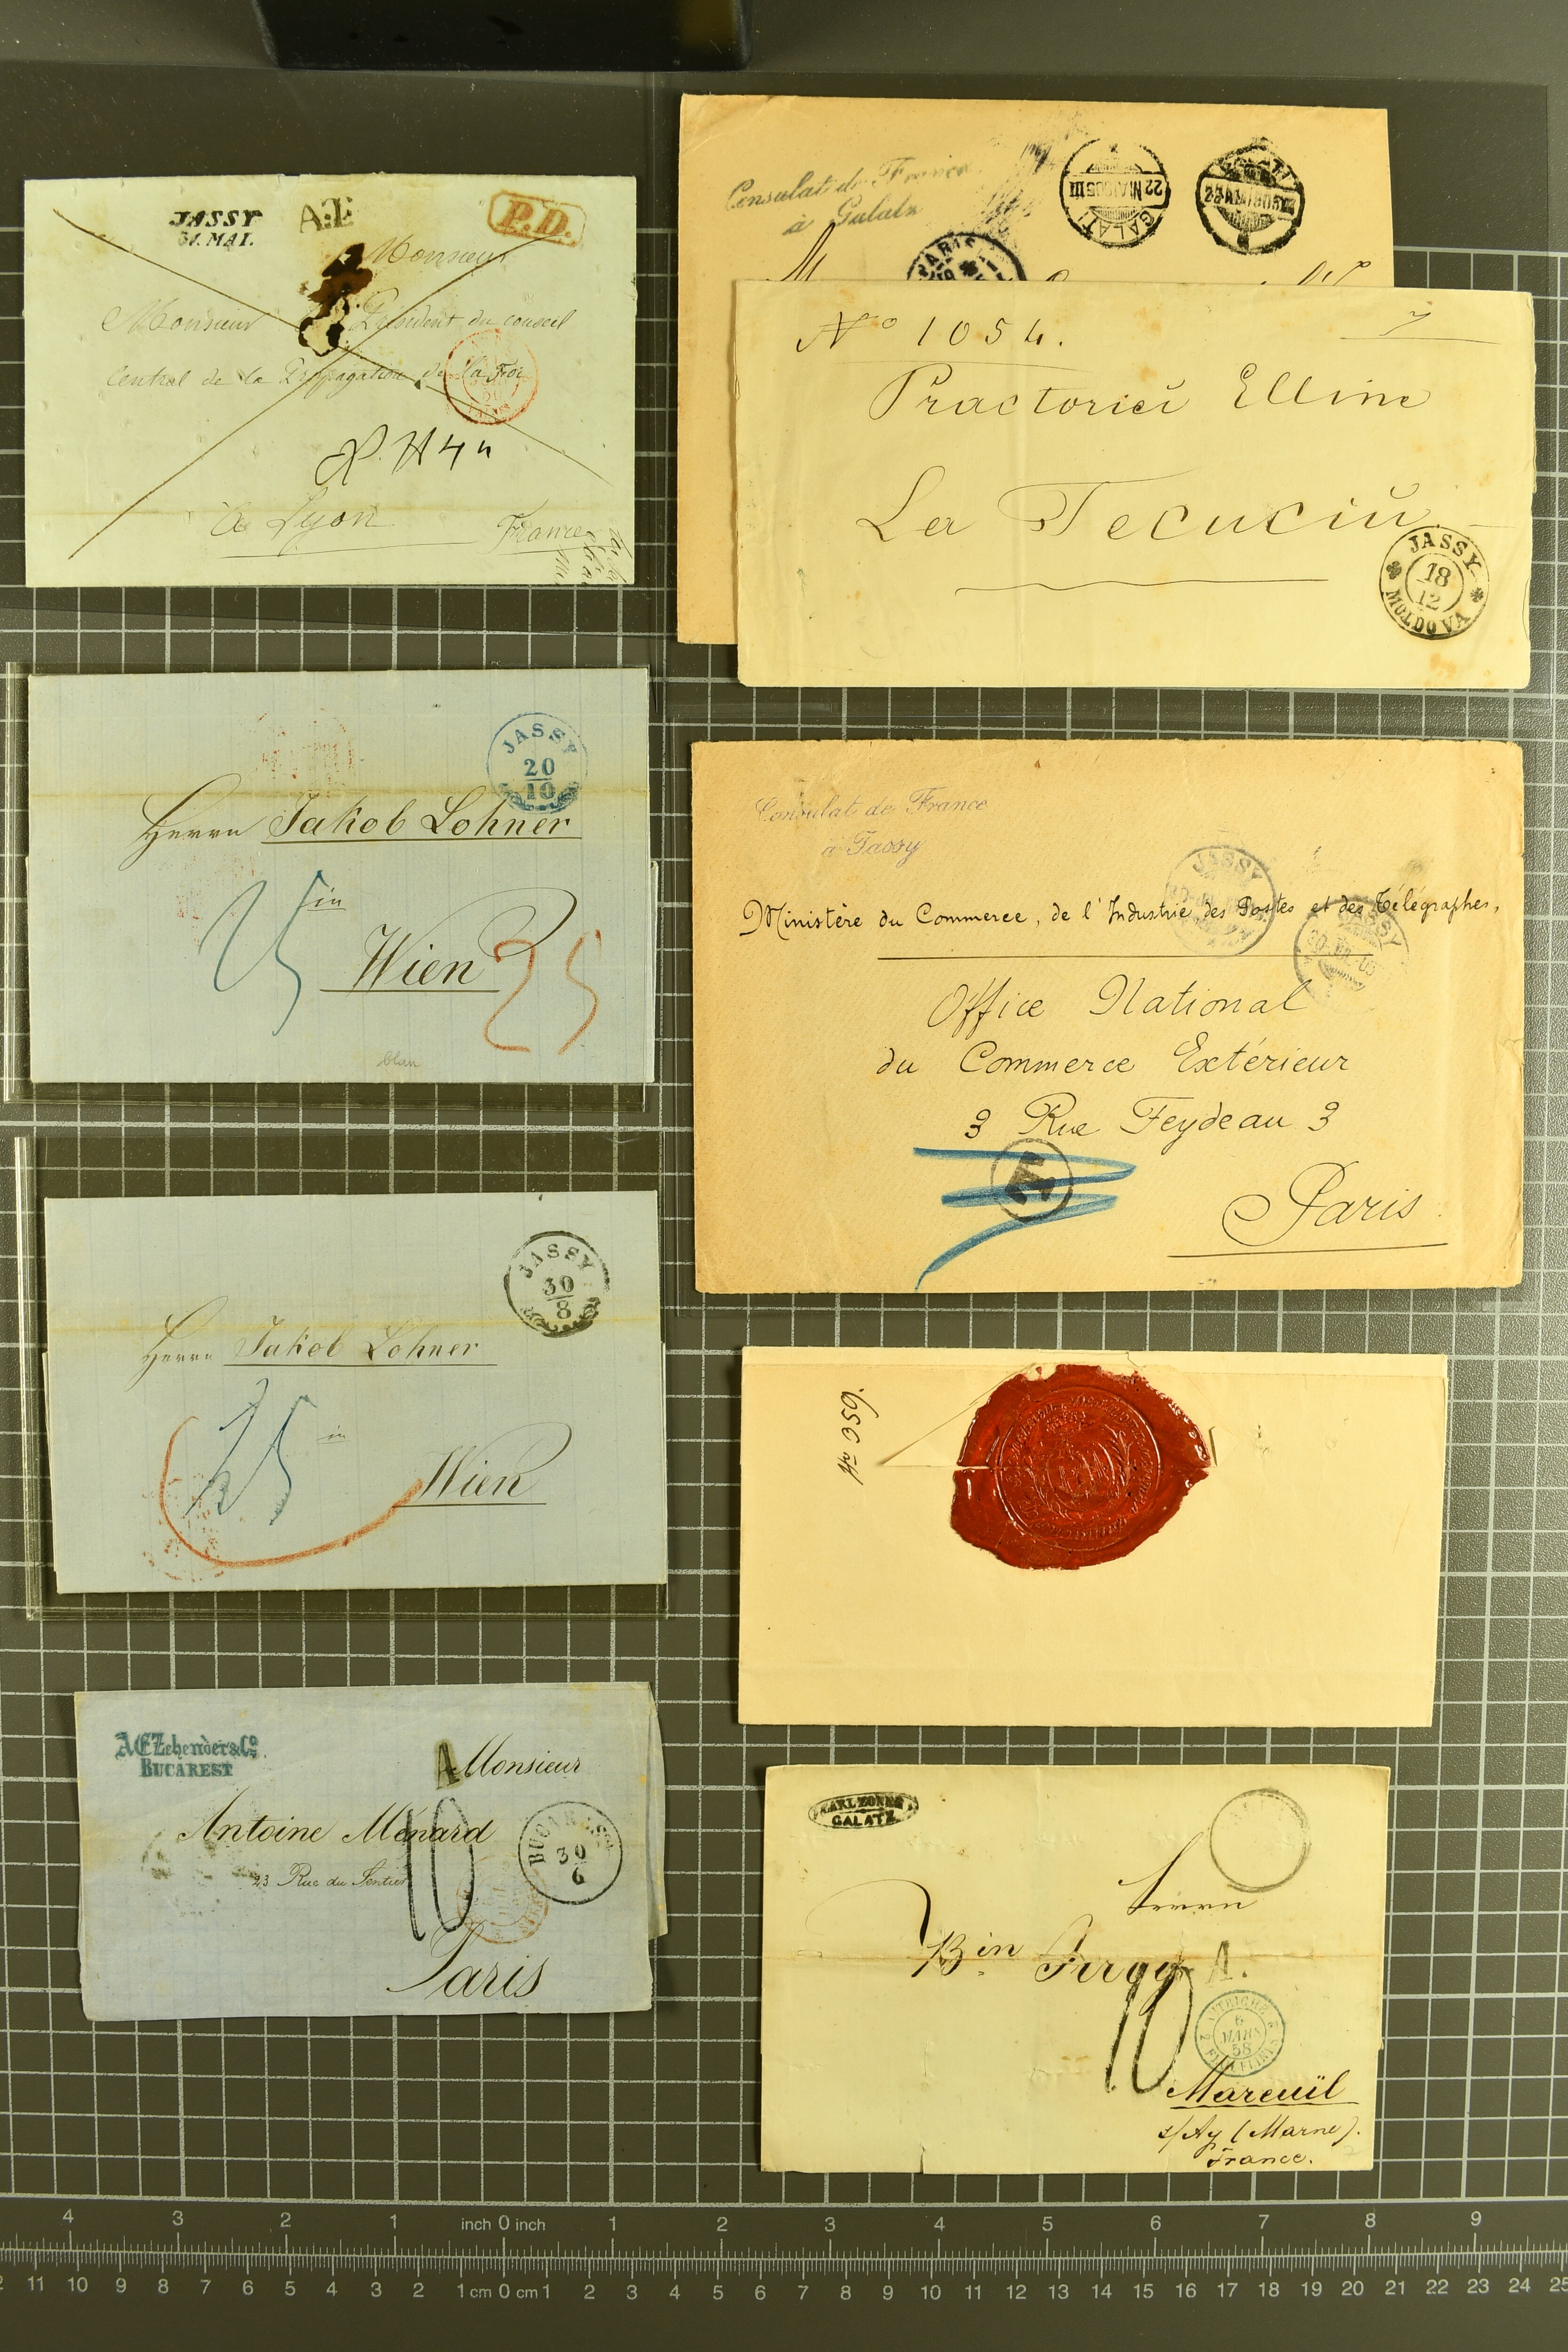 JASSY
31. MAI.
A.T.
P.D.
Monsieur
Monsieur Président du conseil
Central de la Propagation de la Foi
à Lyon
France
JASSY
20
10
Herrn Jakob Lohner
in
Wien
25
blau
JASSY
30
8
Herrn Jakob Lohner
25
in
Wien
A.E. Zehender & Co.
BUCAREST
A
Monsieur
Antoine Ménard
10
23 Rue du Sentier
BUCAREST
30
6
Paris
Consulat de France
à Galatz
GALATI
PARIS
No 1054.
Practoriei Elline
La Tecuciŭ
JASSY
18
12
MOLDOVA
Consulat de France
à Jassy
JASSY
JASSY
Ministère du Commerce, de l'Industrie des Postes et des Télégraphes,
Office National
du Commerce Extérieur
3 Rue Feydeau 3
Paris
No 959.
GALATZ
Herrn
A.
10
AUTRICHE
6
MARS
58
Mareuil
s/Ay (Marne).
France.
4 3 2 1 inch 0 inch 1 2 3 4 5 6 7 8 9
11 10 9 8 7 6 5 4 3 2 1 cm 0 cm 1 2 3 4 5 6 7 8 9 10 11 12 13 14 15 16 17 18 19 20 21 22 23 24 25